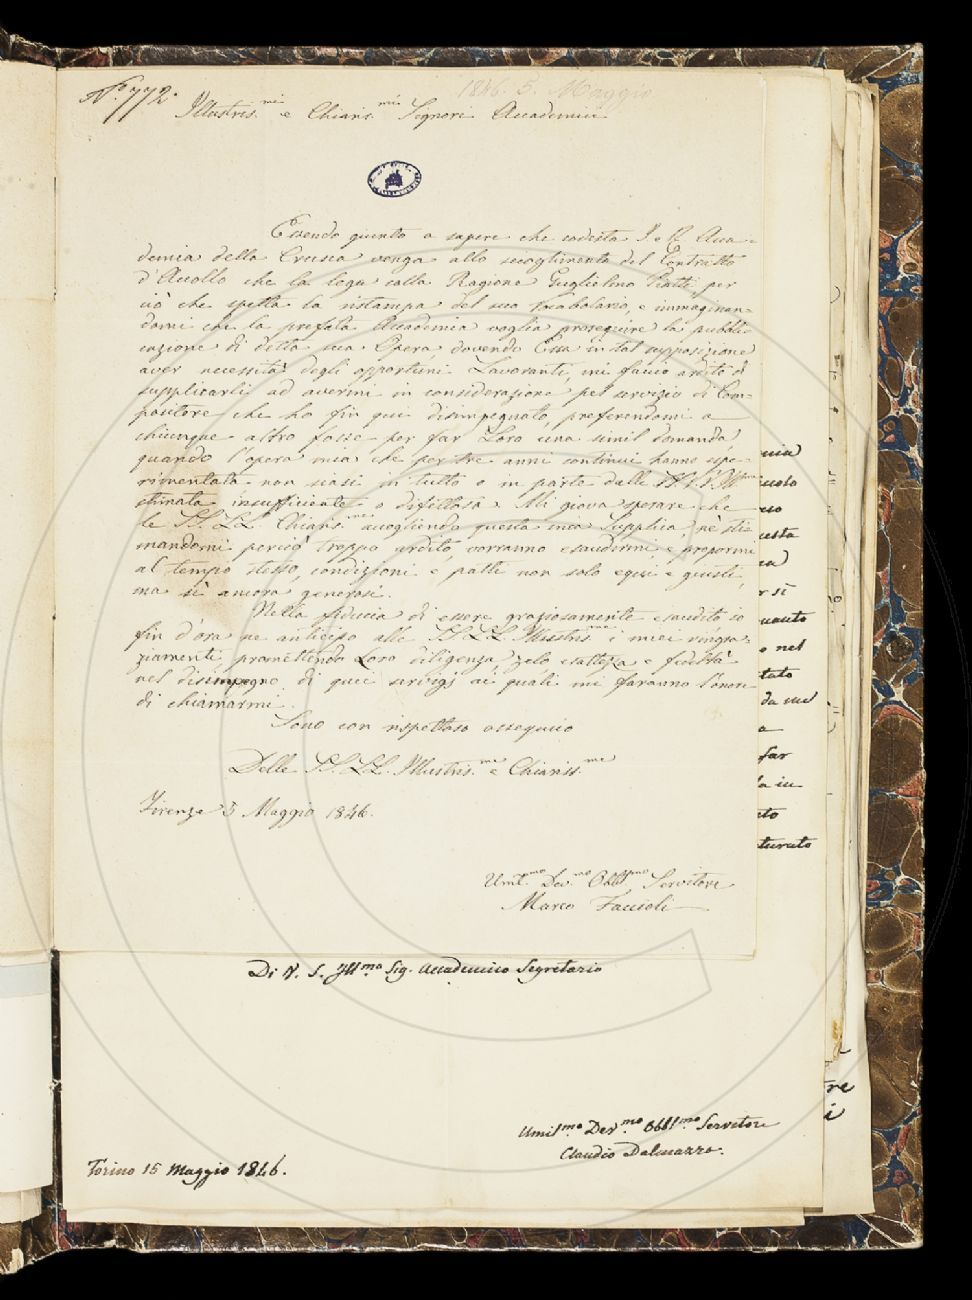 N.° 772.
1846. 5. Maggio
Illustris.mi e Chiaris.mi Signori Accademici
Essendo giunto a sapere che codesta I. e R. Acca=
demia della Crusca venga allo scioglimento del Contratto
d'Accollo che la lega colla Ragione Guglielmo Piatti per
ciò che spetta la ristampa del suo Vocabolario, e immaginan=
domi che la prefata Accademia voglia proseguire la pubbli=
cazione di detta sua Opera, dovendo Essa in tal supposizione
aver necessità degli opportuni Lavoranti, mi faccio ardito di
supplicarli ad avermi in considerazione pel servizio di Com=
positore che ho fin qui disimpegnato, preferendomi a
chiunque altro fosse per far Loro una simil domanda,
quando l'opera mia che per tre anni continui hanno espe=
rimentata non siasi in tutto o in parte dalle VV. SS. Ill.me
stimata insufficiente o difettosa. Mi giova sperare che
le SS. LL. Chiaris.me accogliendo questa mia Supplica, nè sti=
mandomi perciò troppo ardito, vorranno esaudirmi e propormi
al tempo stesso, condizioni e patti non solo equi e giusti,
ma sì ancora generosi.
Nella fiducia di essere graziosamente esaudito io
fin d'ora ne anticipo alle SS. LL. Illustris.me i miei ringra=
ziamenti, promettendo Loro diligenza, zelo esattezza e fedeltà
nel disimpegno di quei servigj ai quali mi faranno l'onore
di chiamarmi.
Sono con rispettoso ossequio
Delle SS. LL. Illustris.me e Chiariss.me
Firenze 5 Maggio 1846.
Uml.mo Dev.mo Obbl.mo Servitore
Marco Faccioli
Di V. S. Ill.ma Sig. Accademico Segretario
Umil.mo Dev.mo Obbl.mo Servitore
Claudio Dalmazzo.
Torino 15 Maggio 1846.